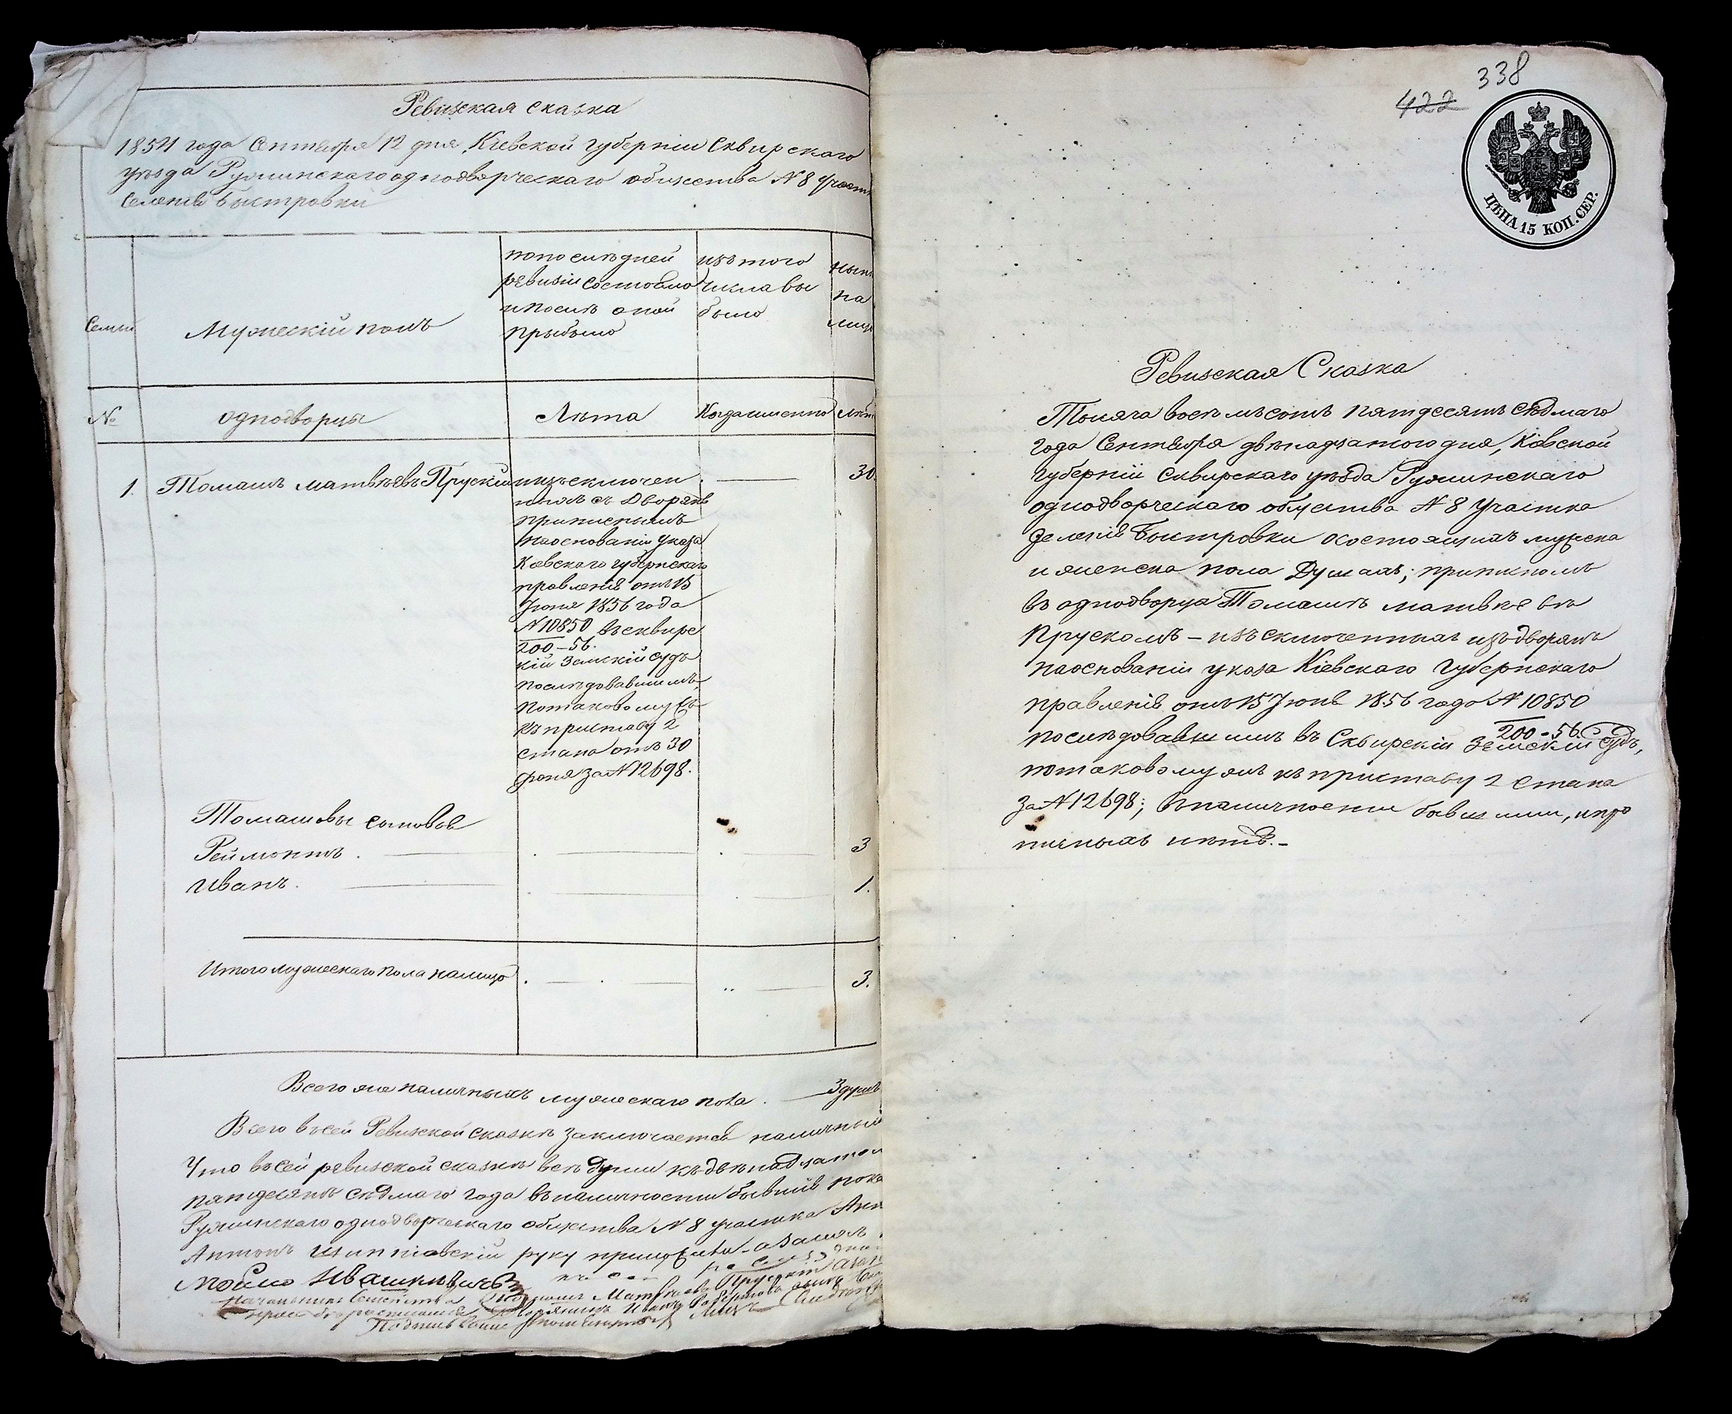 Ревизская сказка
1857 года Сентября 12 дня, Кіевской губерніи Сквирскаго
уѣзда Ружинскаго однодворческаго общества N 8 участ
Селенія Быстровки
Семьи
Мужескій полъ
попослѣдней
ревизіи состояло
и послѣ оной
прибыло
изъ того
числа вы
было
нын
на
лиц
№
однодворцы
Лѣта
Когда именно
лѣт
1.
Томашъ Матвѣевъ Прускій
изъ исключен
ныхъ съ Дворянъ
приписнымъ
наоснованіи указа
Кіевскаго губернскаго
правленія отъ 15
Іюня 1856 года
N 10850
200-56.
въ сквирс
кій Земскій судъ
послѣдовавшимъ,
потаковому жъ
къ приставу 2
стана отъ 30
за N 12698.
30.
Томашовы сыновья
Реймонтъ.
3
Иванъ.
1.
Итого мужескаго пола налицо
3.
Всего же наличныхъ мужескаго пола.
3 душъ
Всего въ сей Ревизской сказкѣ заключается наличныхъ
Что въ сей ревизской сказкѣ всѣ души къ двѣнадцатом
пятьдесятъ седмаго года въ наличности бывшія пока
Ружинскаго однодворческаго общества N 8 участка
Антонъ руку приложилъ
Ивашкевичъ
Матвѣевъ Прускій
Дворянинъ Иванъ
422
338
ЦѢНА 15 КОП. СЕР.
Ревизская Сказка
Тысяча восемьсотъ пятдесятъ седмаго
года Сентября двѣнадцатого дня, Кіевской
губерніи Сквирскаго уѣзда Ружинскаго
однодворческаго общества N 8 участка
Селенія Быстровки о состоящихъ мужеска
и женска пола Душахъ; приписномъ
въ однодворца Томашѣ Матвѣевѣ
Прускомъ – изъ исключенныхъ изъ дворянъ
наоснованіи указа Кіевскаго Губернскаго
правленія отъ 15 Іюня 1856 года N 10850
200-56
послѣдовавшимъ въ Сквирскій Земскій Судъ,
потаковому жъ къ приставу 2 стана
за N 12698; въ наличности бывшими, и про
писныхъ нѣтъ.–